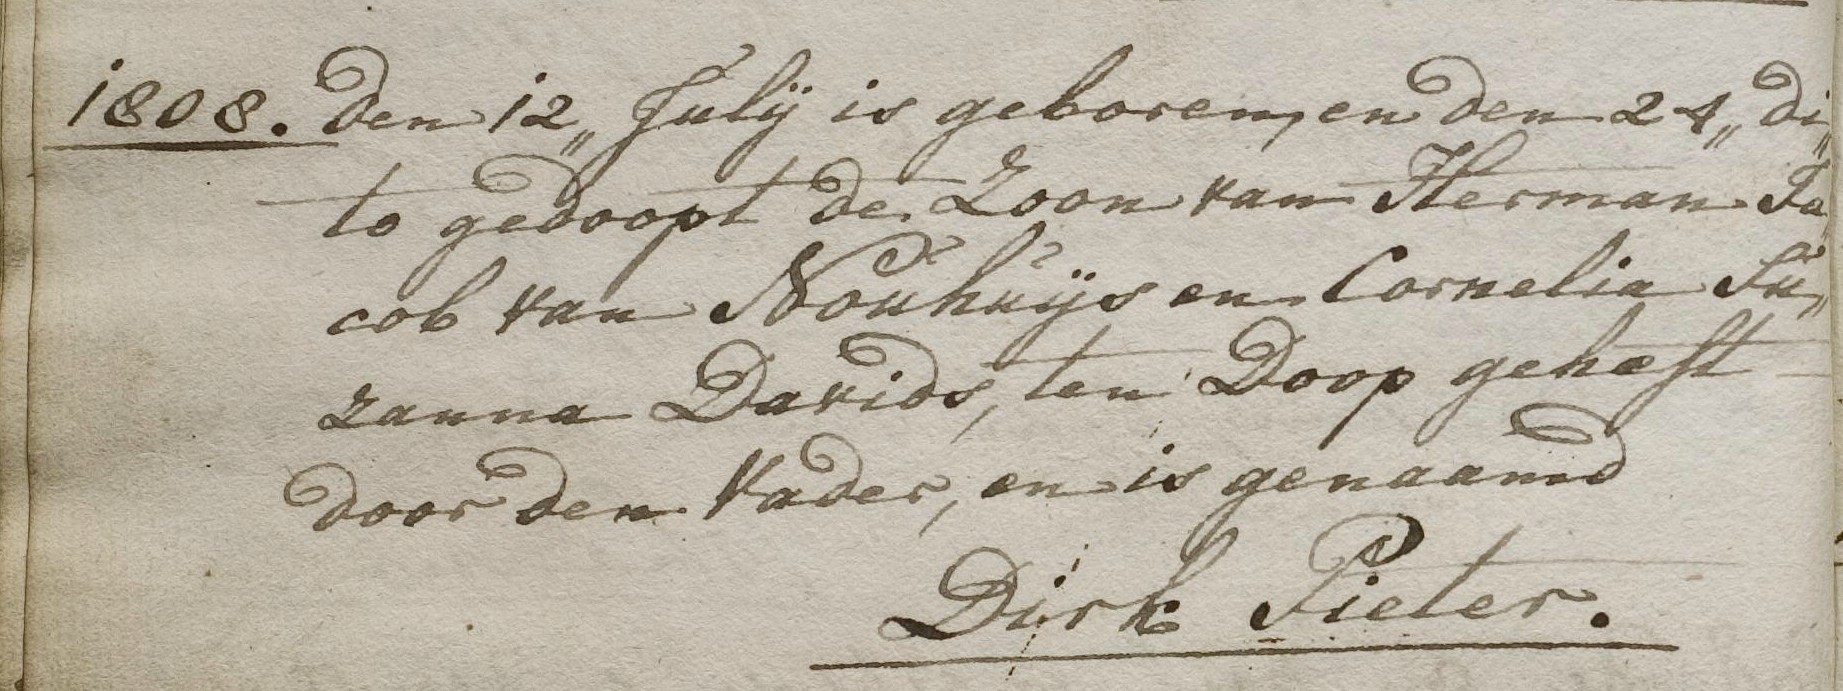 1808. Den 12„ Julij is geboren, en den 24„ di„
to gedoopt de Zoon van Herman Ja„
cob van Nouhuijs en Cornelia Su„
zanna Davids, ten Doop geheft
door den Vader, en is genaamd
Dirk Pieter.